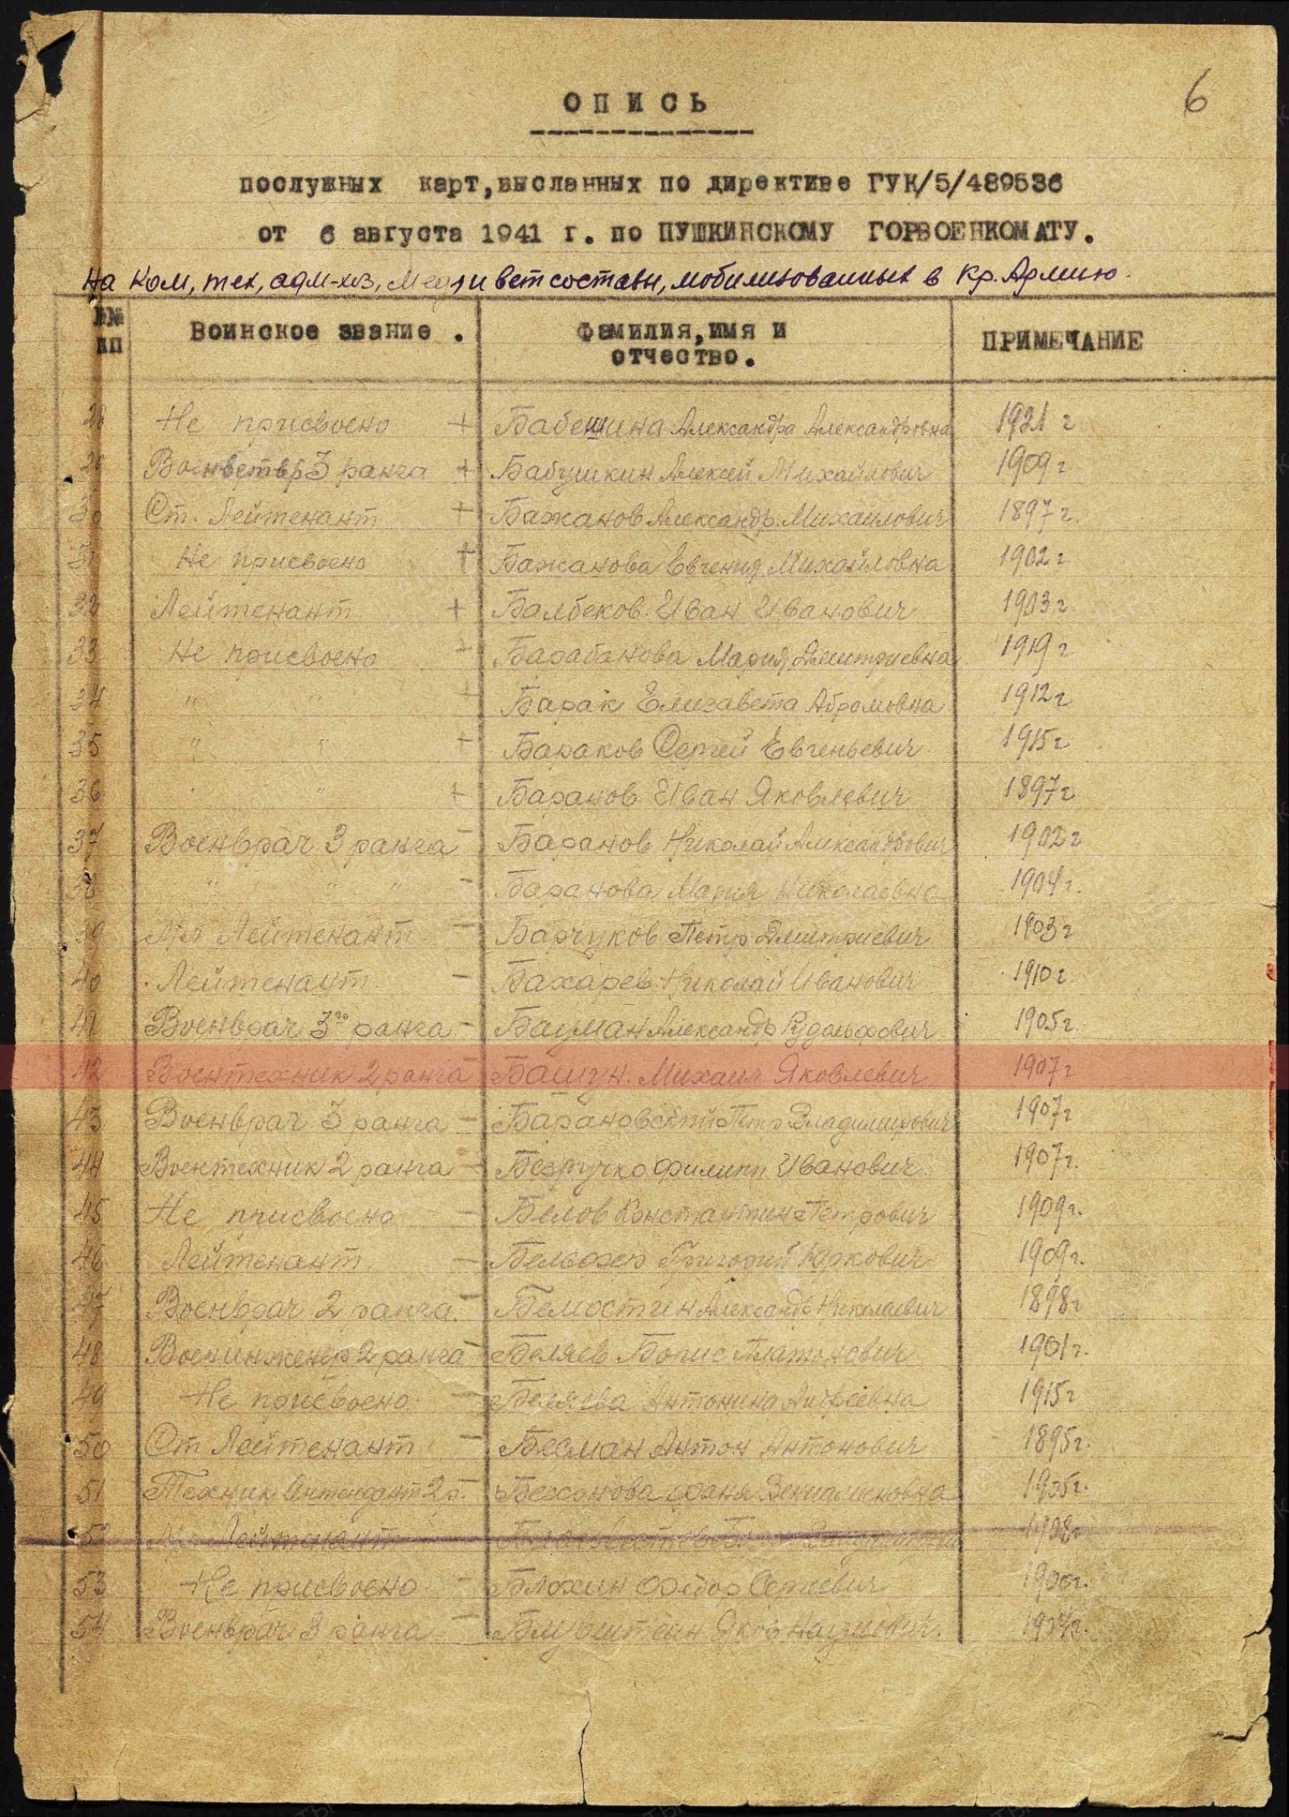 6
ОПИСЬ
послужных карт,высланных по директиве ГУК/5/489536
от 6 августа 1941 г. по ПУШКИНСКОМУ ГОРВОЕНКОМАТУ.
на Ком, тех, адм-хоз, Мед, и ветсоставы, мобилизованных в Кр. Армию.
№№ пп Воинское звание. Фамилия,имя и отчество. ПРИМЕЧАНИЕ
28 Не присвоено + Бабешина Александра Александровна 1921 г
29 Военветвр 3 ранга + Бабушкин Алексей Михайлович 1909 г
30 Ст. Лейтенант + Бажанов Александр Михайлович 1897 г.
31 Не присвоено + Бажанова Евгения Михайловна 1902 г
32 Лейтенант + Балбеков Иван Иванович 1903 г
33 Не присвоено + Барабанова Мария Дмитриевна 1919 г
34 " " + Барак Елизавета Абромовна 1912 г
35 " " + Бараков Сергей Евгеньевич 1915 г
36 " " + Баранов Иван Яковлевич 1897 г
37 Военврач 3 ранга - Баранов Николай Александрович 1902 г
38 " " " - Баранова Мария Николаевна 1904 г.
39 Мл Лейтенант - Барчуков Петр Дмитриевич 1903 г
40 Лейтенант - Бахарев Николай Иванович 1910 г.
41 Военврач 3го ранга - Бауман Александр Рудольфович 1905 г.
42 Воентехник 2 ранга - Башун Михаил Яковлевич 1907 г
43 Военврач 3 ранга - Барановский Петр Владимирович 1907 г
44 Воентехник 2 ранга - Безручко Филипп Иванович 1907 г.
45 Не присвоено - Белов Константин Петрович 1909 г.
46 Лейтенант - Григорий 1909 г.
47 Военврач 2 ранга. - Александр Николаевич 1898 г
48 Военинженер 2 ранга - Беляев Борис Платонович 1901 г.
49 Не присвоено - Беляева Антонина Андреевна 1915 г
50 Ст Лейтенант - Бесман Антон Антонович 1895 г.
51 Техник Интендант 2 р. - Фаня 1905 г.
52 Мл Лейтенант 1908 г
53 Не присвоено - Блохин Федор Сергеевич
54 Военврач 3 ранга - Яков Наумович.